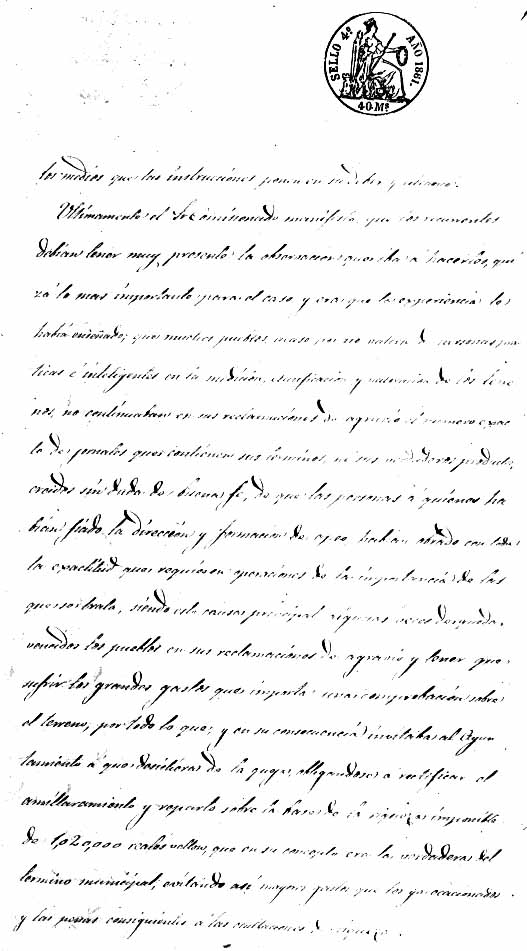 SELLO 4º AÑO 1861.
40 Ms
los medios que las instrucciones ponen en su deber y alcance.
Ultimamente el Sr Comisionado manifestó que los recurrentes
debian tener muy presente la observacion que iba á hacerles, qui
zá lo mas importante para el caso y era que la experiencia le
habia enseñado; que muchos pueblos por no valerse de personas prac
ticas é inteligentes en la medicion, clasificacion y valoracion de los terre
nos, no continuaban en sus reclamaciones de agravio el numero exac
to de jornales que contienen sus terminos, ni sus verdaderos productos,
creidos sin duda de buena fe, de que las personas á quienes ha
bian fiado la direccion y formacion de habian obrado con toda
la exactitud que requieren operaciones de la importancia de las
que se trata, siendo esta causa principal algunas veces de quedar
vencidos los pueblos en sus reclamaciones de agravio y tener que
sufrir los grandes gastos que importa una comprobacion sobre
el terreno, por todo lo que, y en su consecuencia invitaba al Ayun
tamiento á que desistiera de la queja, obligandose á rectificar el
amillaramiento y reparto sobre la base de la riqueza imponible
de 1,020,000 reales vellon, que en su concepto era la verdadera del
termino municipal, evitando asi mayores gastos que los ya ocasionados
y las penas consiguientes á las ocultaciones de riqueza.